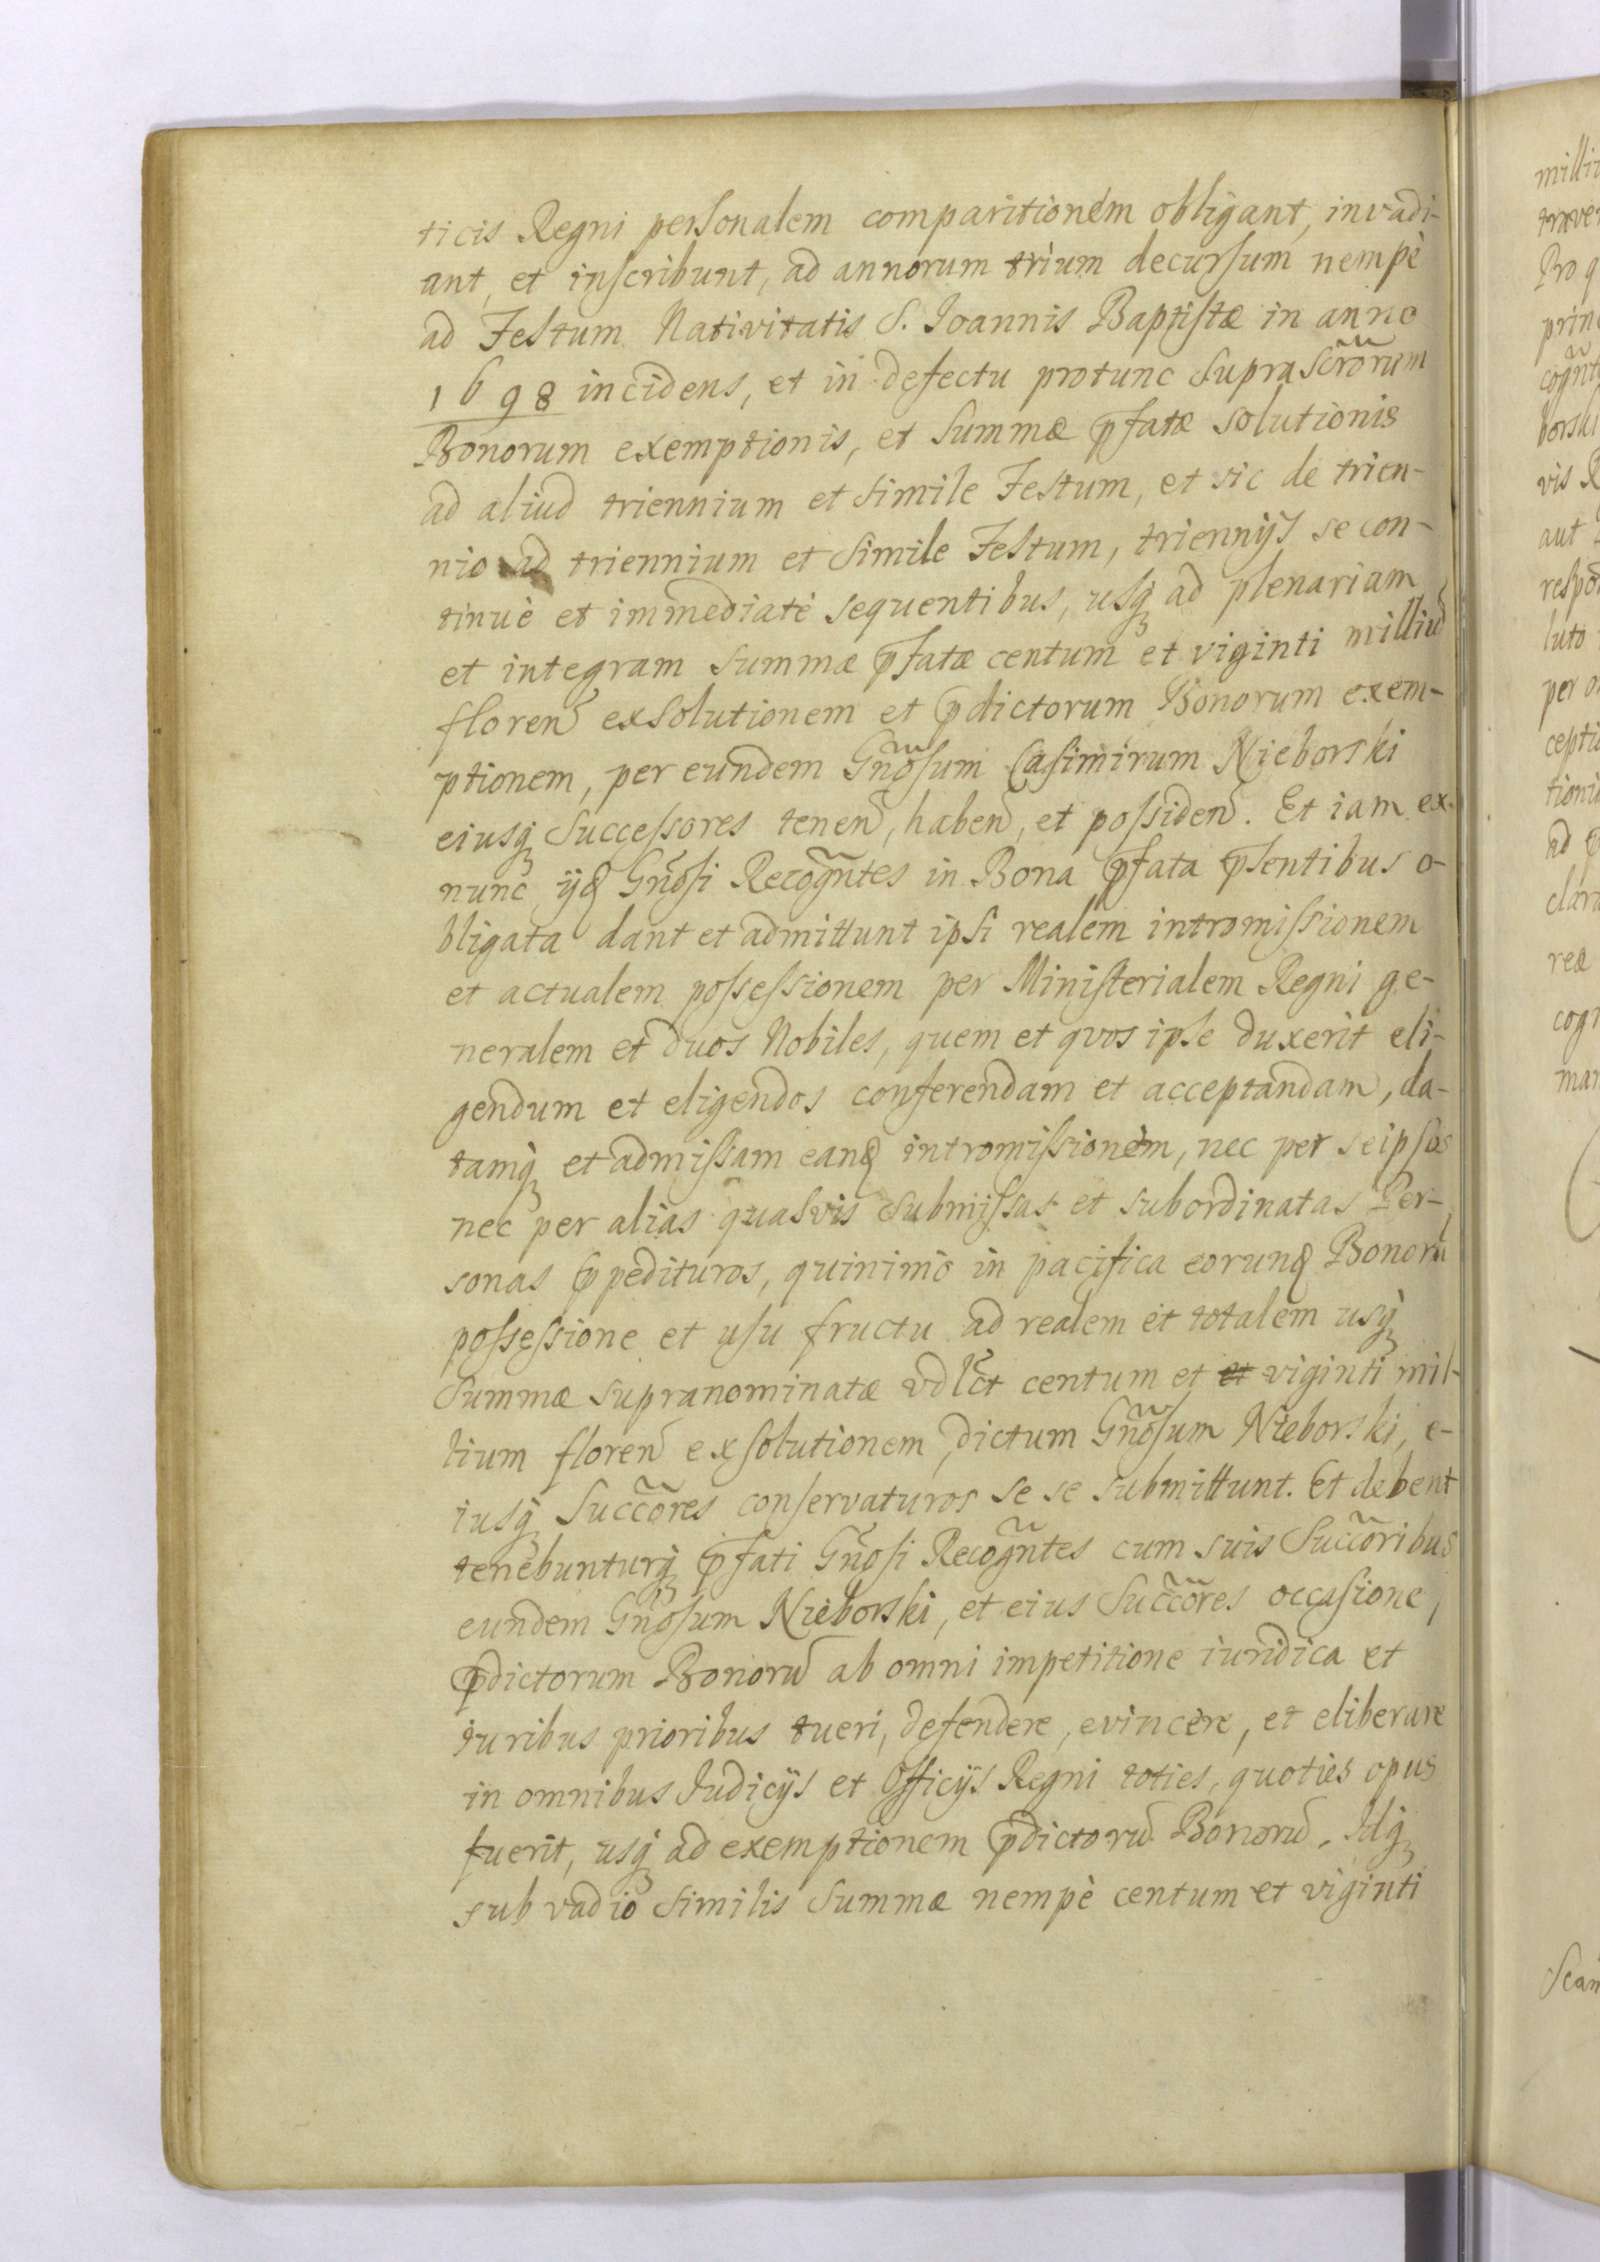 ticis Regni personalem comparitionem obligant, invadi-
ant, et inscribunt, ad annorum trium decursum nempè
ad Festum Nativitatis S. Ioannis Baptistæ in anno
1698 incidens, et in defectu protunc supra scr̃orum
Bonorum exemptionis, et Summæ p̃fatæ solutionis
ad aliud triennium et simile Festum, et sic de trien-
nio ad triennium et simile Festum, triennijs se con-
tinuè et immediatè sequentibus, usq́ ad plenariam
et integram summæ p̃fatæ centum et viginti milliũ
floreñ exsolutionem et p̃dictorum Bonorum exem-
ptionem, per eundem Gñosum Casimirum Nieborski
eiusq́ Successores teneñ, habeñ, et possideñ. Et iam ex
nunc ijd Gñosi Recogñtes in Bona p̃fata p̃sentibus o-
bligata dant et admittunt ipsi realem intromissionem
et actualem possessionem per Ministerialem Regni ge-
neralem et duos Nobiles, quem et quos ipse duxerit eli-
gendum et eligendos conferendam et acceptandam, da-
tamq́ et admissam eand intromissionem, nec per seipsos
nec per alias quasvis submissas et subordinatas Per-
sonas p̃pedituros, quinimò in pacifica eorund Bonorũ
possessione et usu fructu ad realem et totalem usq́
Summæ supranominatæ vdlc̃t centum et et viginti mil-
lium floreñ exsolutionem, dictum Gñosum Nieborski, e-
iusq́ Succ̃ores conservaturos se se submittunt. Et debent
tenebunturq́ p̃fati Gñosi Recogñtes cum suis Succ̃oribus
eundem Gñosum Nieborski, et eius Succ̃ores occasione,
p̃dictorum Bonorũ ab omni impetitione iuridica et
iuribus prioribus tueri, defendere, evincere, et eliberare
in omnibus Iudicijs et Officijs Regni toties, quoties opus
fuerit, usq́ ad exemptionem p̃dictorũ Bonorũ. Idq́
sub vadio similis summæ nempè centum et viginti